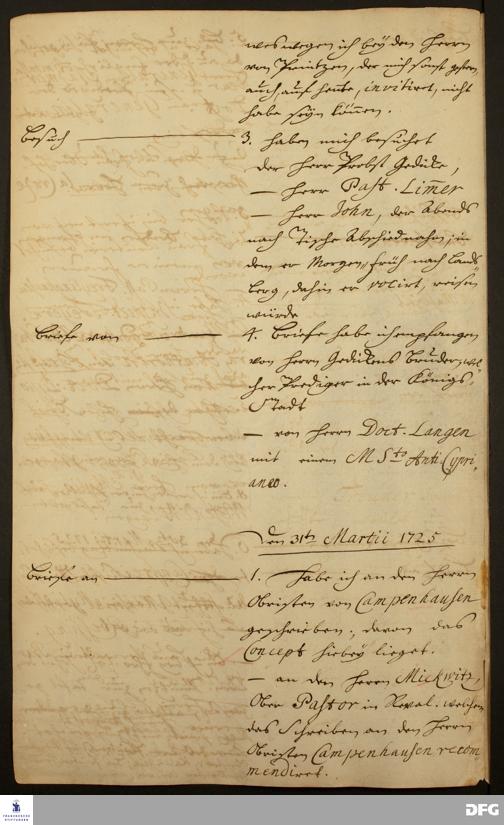 weswegen ich bey den Herrn
von Printzen, der mich sonst gestern,
auch, auf heute, invitiret, nicht
habe seyn können.
Besuch
3. haben mich besuchet
der Herr Probst Gedicke,
— Herr Past. Limer
— Herr John, der Abends
nach Tische Abschied nahm, in
dem er Morgen früh nach Lands
berg, dahin er vocirt, reisen
würde
Briefe von
4. Briefe habe ich empfangen
von Herrn Gedickens Bruder, wel
cher Prediger in der Königs
Stadt
— von Herrn Doct. Langen
mit einem MSto Anti-Cypri
aneo.
Den 31ten Martii 1725
Briefe an
1. Habe ich an den Herrn
Obristen von Campenhausen
geschrieben, davon das
Concept hiebey lieget.
— an den Herrn Mickwitz,
Ober Pastor in Reval, welchem
das Schreiben an den Herrn
Obristen Campenhausen recom
mendiret.
FRANCKESCHE
STIFTUNGEN
DFG